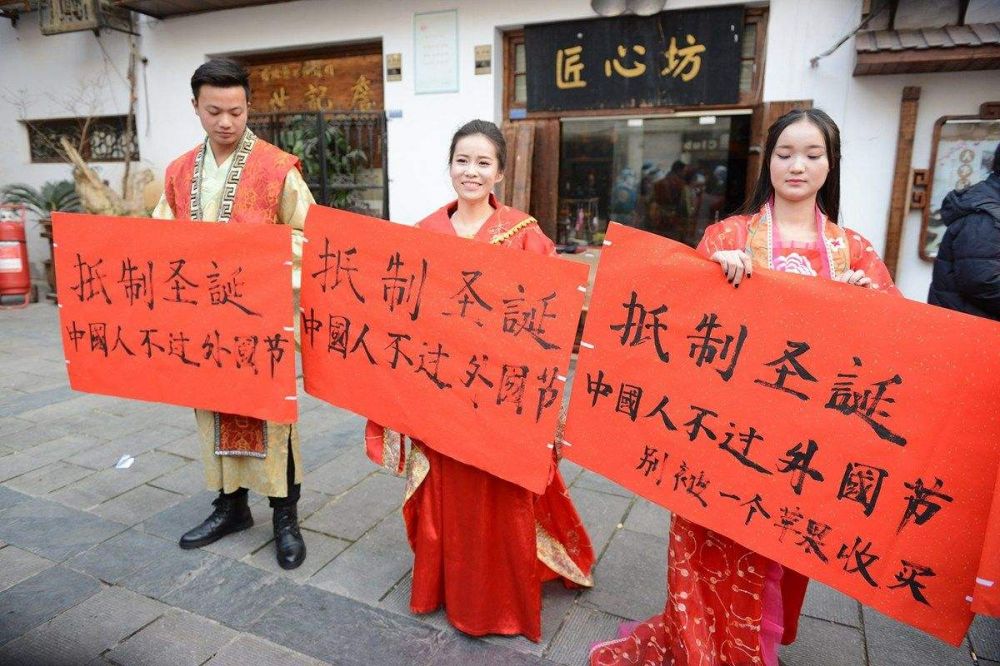 匠心坊
Club
抵制圣誕
中國人不过外國节
抵制圣誕
中國人不过外國节
抵制圣誕
中國人不过外國节
别被一个苹果收买